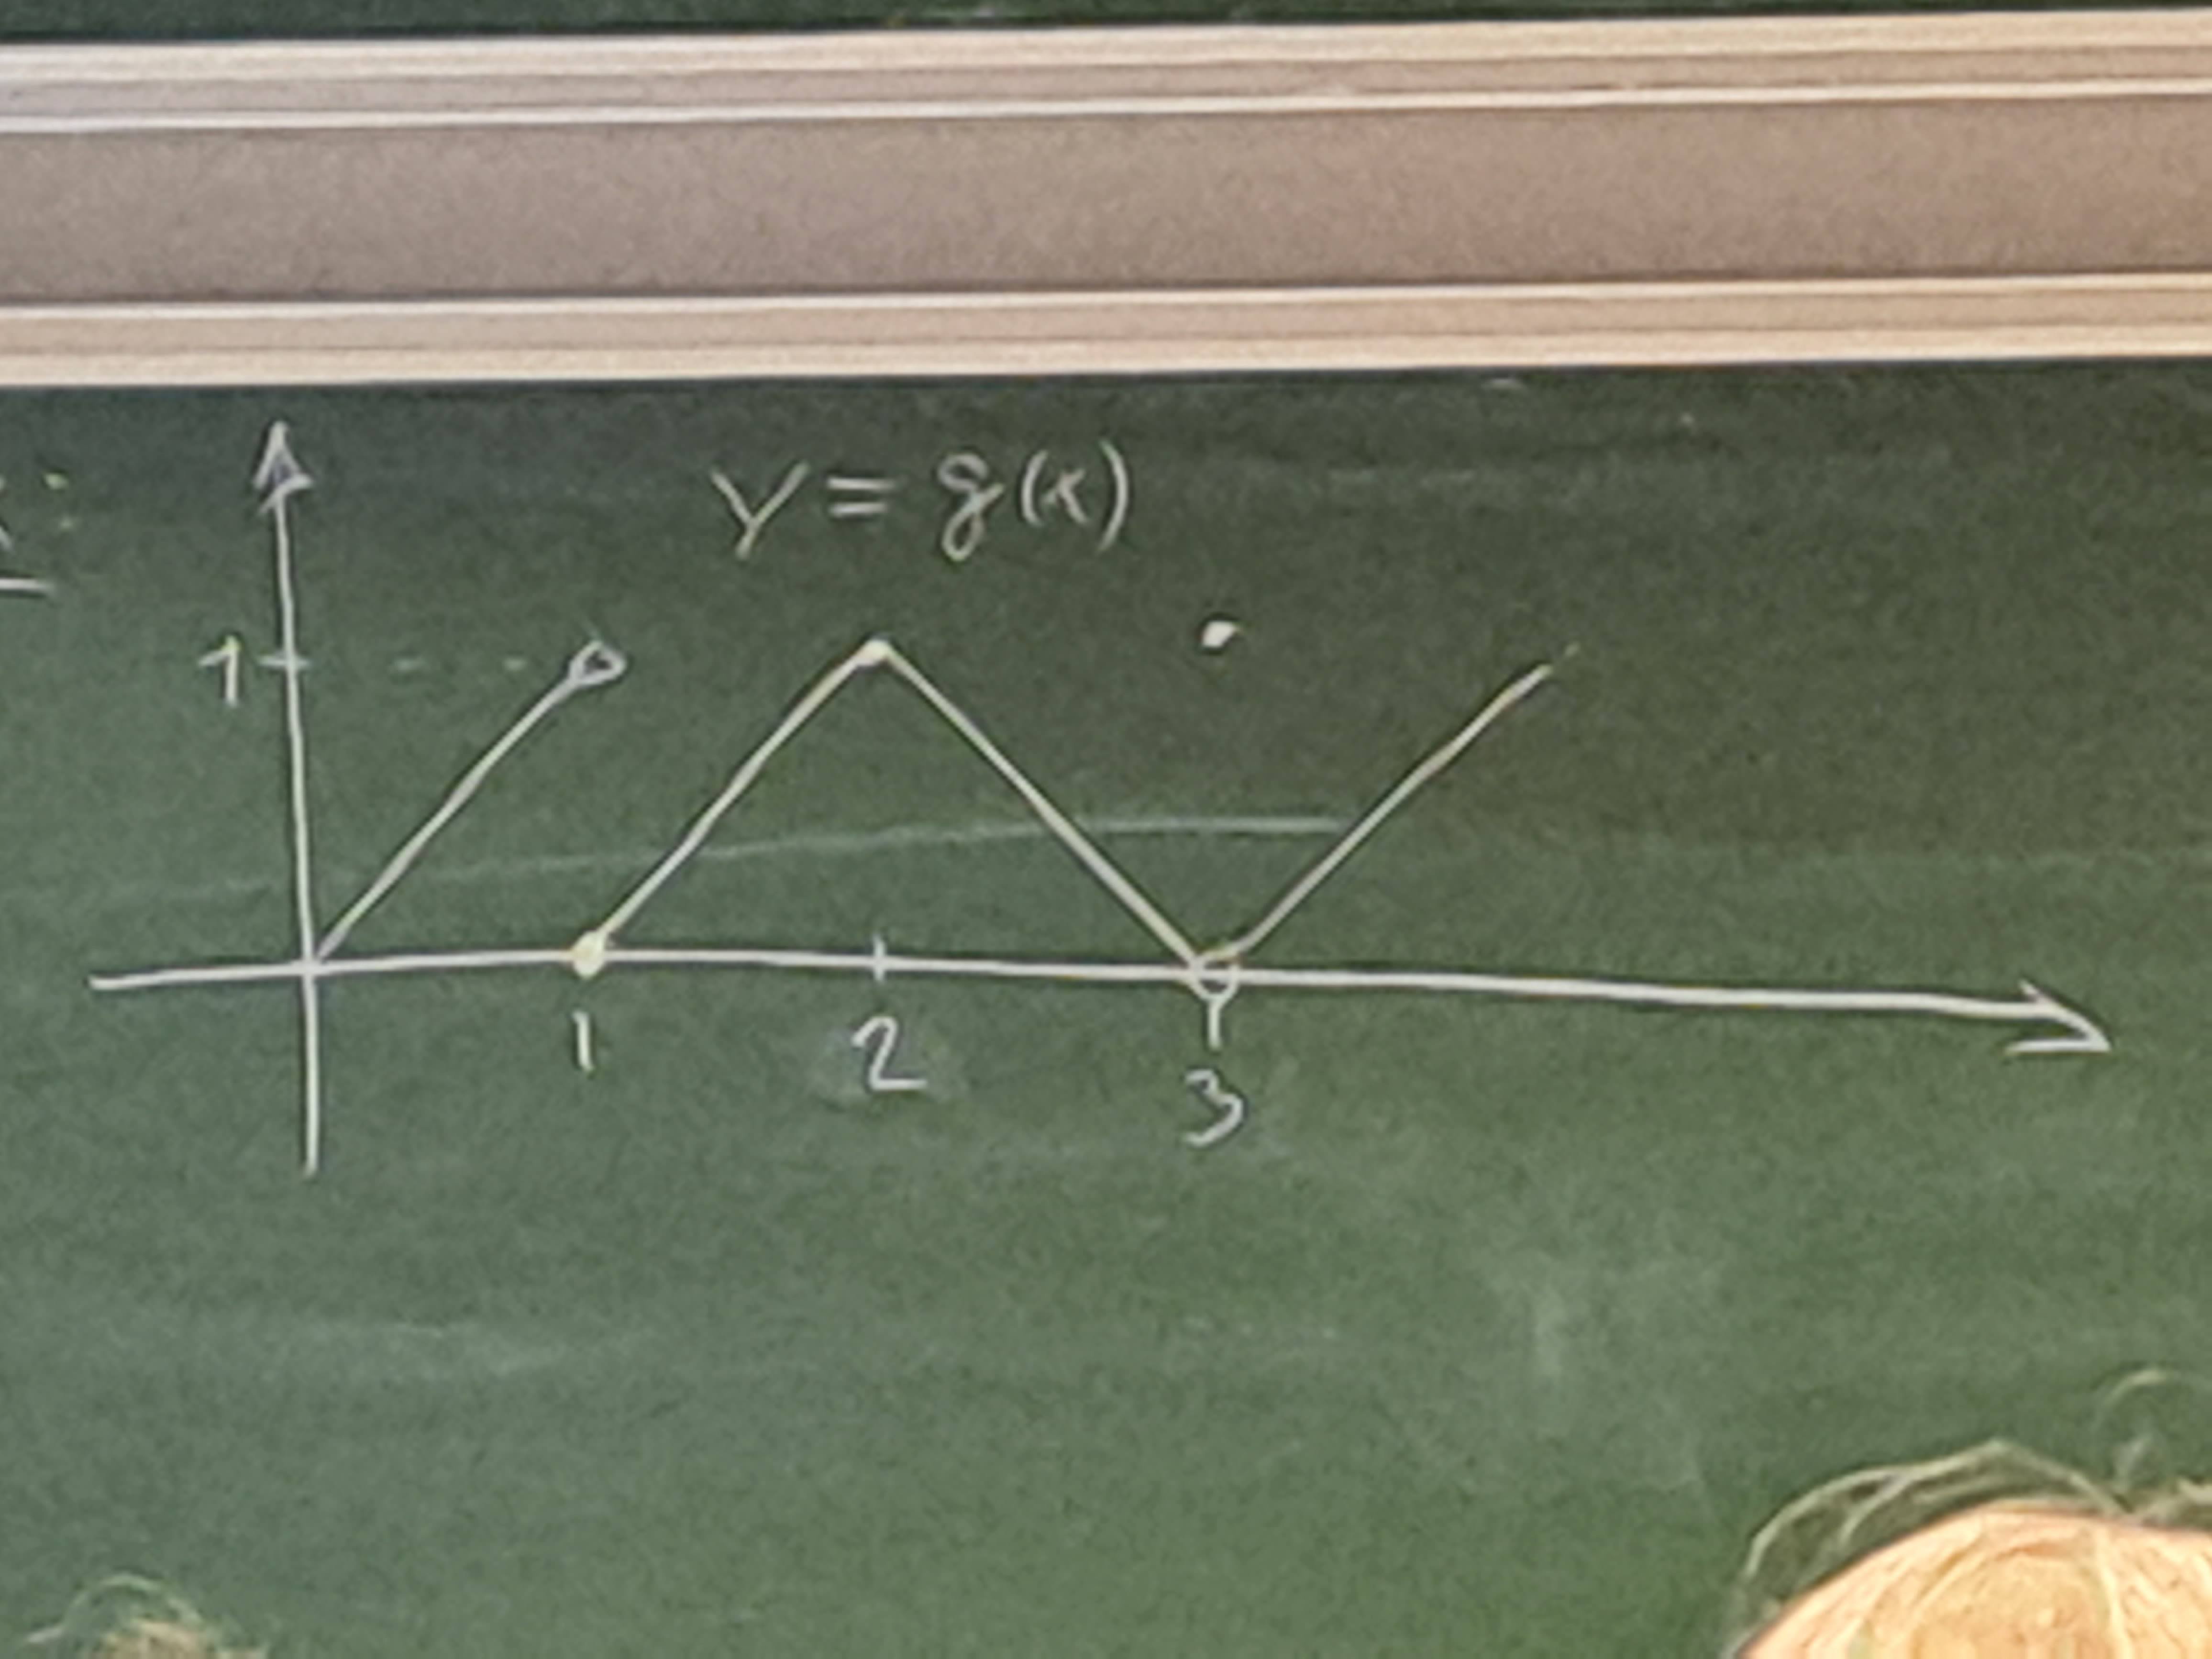 y = g(x)
1
1 2 3